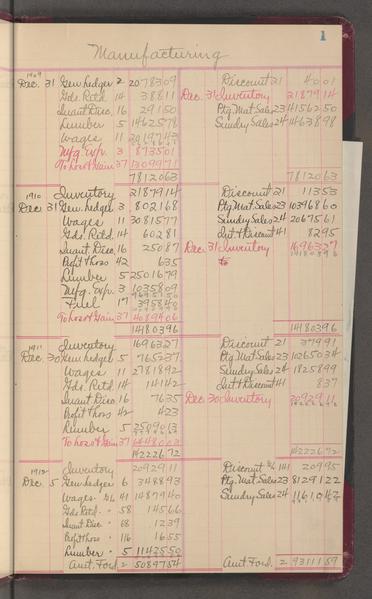 1
Manufacturing
1909
Dec. 31 Gen. Ledger 2 2078309 Discount 21 4001
Gds. Retd. 14 38811 Dec. 31 Inventory 2187914
Quant Disc. 16 29150 Ptg. Mat. Sales 23 4156250
Lumber 5 1462578 Sundry Sales 24 1463898
Wages 11 2019743
Mfg. Exp. 3 873501
To Loss & Gain 37 1309971
7812063 7812063
1910 Inventory 2187914 Discount 21 11353
Dec. 31 Gen. Ledger 3 802168 Ptg. Mat. Sales 23 10396860
Wages 11 3081577 Sundry Sales 24 2067561
Gds. Retd. 14 60281 Int & Discount 41 8295
Quant Disc. 16 25087 Dec. 31 Inventory 1696327
Profit & Loss 42 635
Lumber 5 2501679
Mfg. Exp. 3 1035809
Fuel 17 395840
To Loss & Gain 37 4089406
14180396 14180396
1911 Inventory 1696327 Discount 21 37991
Dec. 30 Gen. Ledger 5 765237 Ptg. Mat. Sales 23 10265034
Wages 11 2781892 Sundry Sales 24 1825899
Gds. Retd. 14 14142 Int & Discount 41 837
Quant Disc. 16 7635 Dec. 30 Inventory 2092911
Profit & Loss 42 423
Lumber 5 2509013
To Loss & Gain 37 6448003
14222672 14222672
1912 Inventory 2092911 Discount 141 20995
Dec. 5 Gen. Ledger 6 348893 Ptg. Mat. Sales 23 8129122
Wages 41 1487940 Sundry Sales 24 1161042
Gds. Retd. " 58 14566
Quant Disc. " 68 1239
Profit & Loss " 116 1655
Lumber " 5 1142550
Amt. Ford. 2 5089754 Amt. Ford. 2 9311159